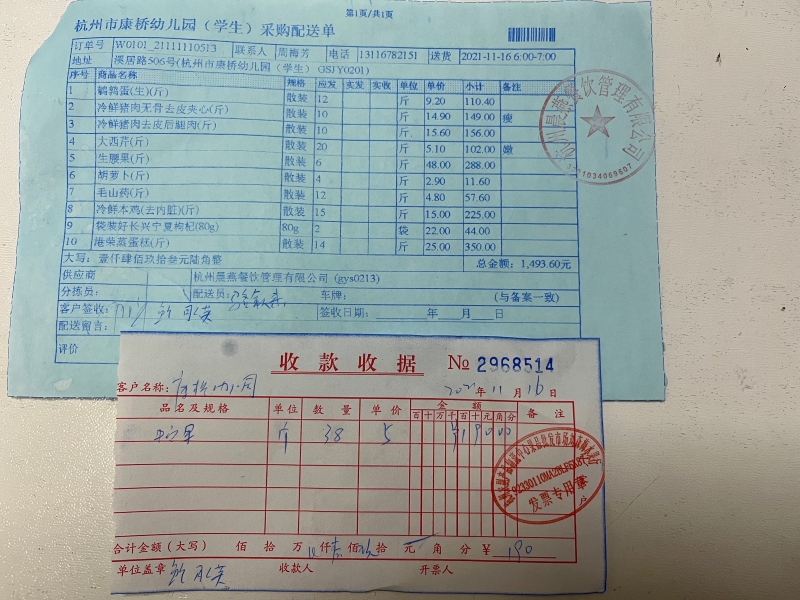 第1页/共1页
杭州市康桥幼儿园（学生）采购配送单
订单号 W0101_21111110513 联系人 周梅芳 电话 13116782151 送货 2021-11-16 6:00-7:00
地址 溪居路506号(杭州市康桥幼儿园（学生）GSJY0201)
序号 商品名称 规格 应发 实发 实收 单位 单价 小计 备注
1 鹌鹑蛋(生)(斤) 散装 12 斤 9.20 110.40
2 冷鲜猪肉无骨去皮夹心(斤) 散装 10 斤 14.90 149.00 瘦
3 冷鲜猪肉去皮后腿肉(斤) 散装 10 斤 15.60 156.00
4 大西芹(斤) 散装 20 斤 5.10 102.00 嫩
5 生腰果(斤) 散装 6 斤 48.00 288.00
6 胡萝卜(斤) 散装 4 斤 2.90 11.60
7 毛山药(斤) 散装 12 斤 4.80 57.60
8 冷鲜本鸡(去内脏)(斤) 散装 15 斤 15.00 225.00
9 袋装好长兴宁夏枸杞(80g) 80g 2 袋 22.00 44.00
10 港荣蒸蛋糕(斤) 散装 14 斤 25.00 350.00
大写：壹仟肆佰玖拾叁元陆角整 总金额：1,493.60元
供应商 杭州晨燕餐饮管理有限公司 (gys0213)
分拣员： 配送员： 车牌： (与备案一致)
客户签收： 签收日期： 年 月 日
配送留言：
评价
杭州晨燕餐饮管理有限公司
收款收据 № 2968514
客户名称： 2021年11月16日
品名及规格 单位 数量 单价 金额 备注
百十万千百十元角分
斤 38 5 ¥190.00
发票专用章
合计金额（大写） 佰 拾 万 仟 壹佰 玖拾 元 角 分 ¥ 190
单位盖章 收款人 开票人